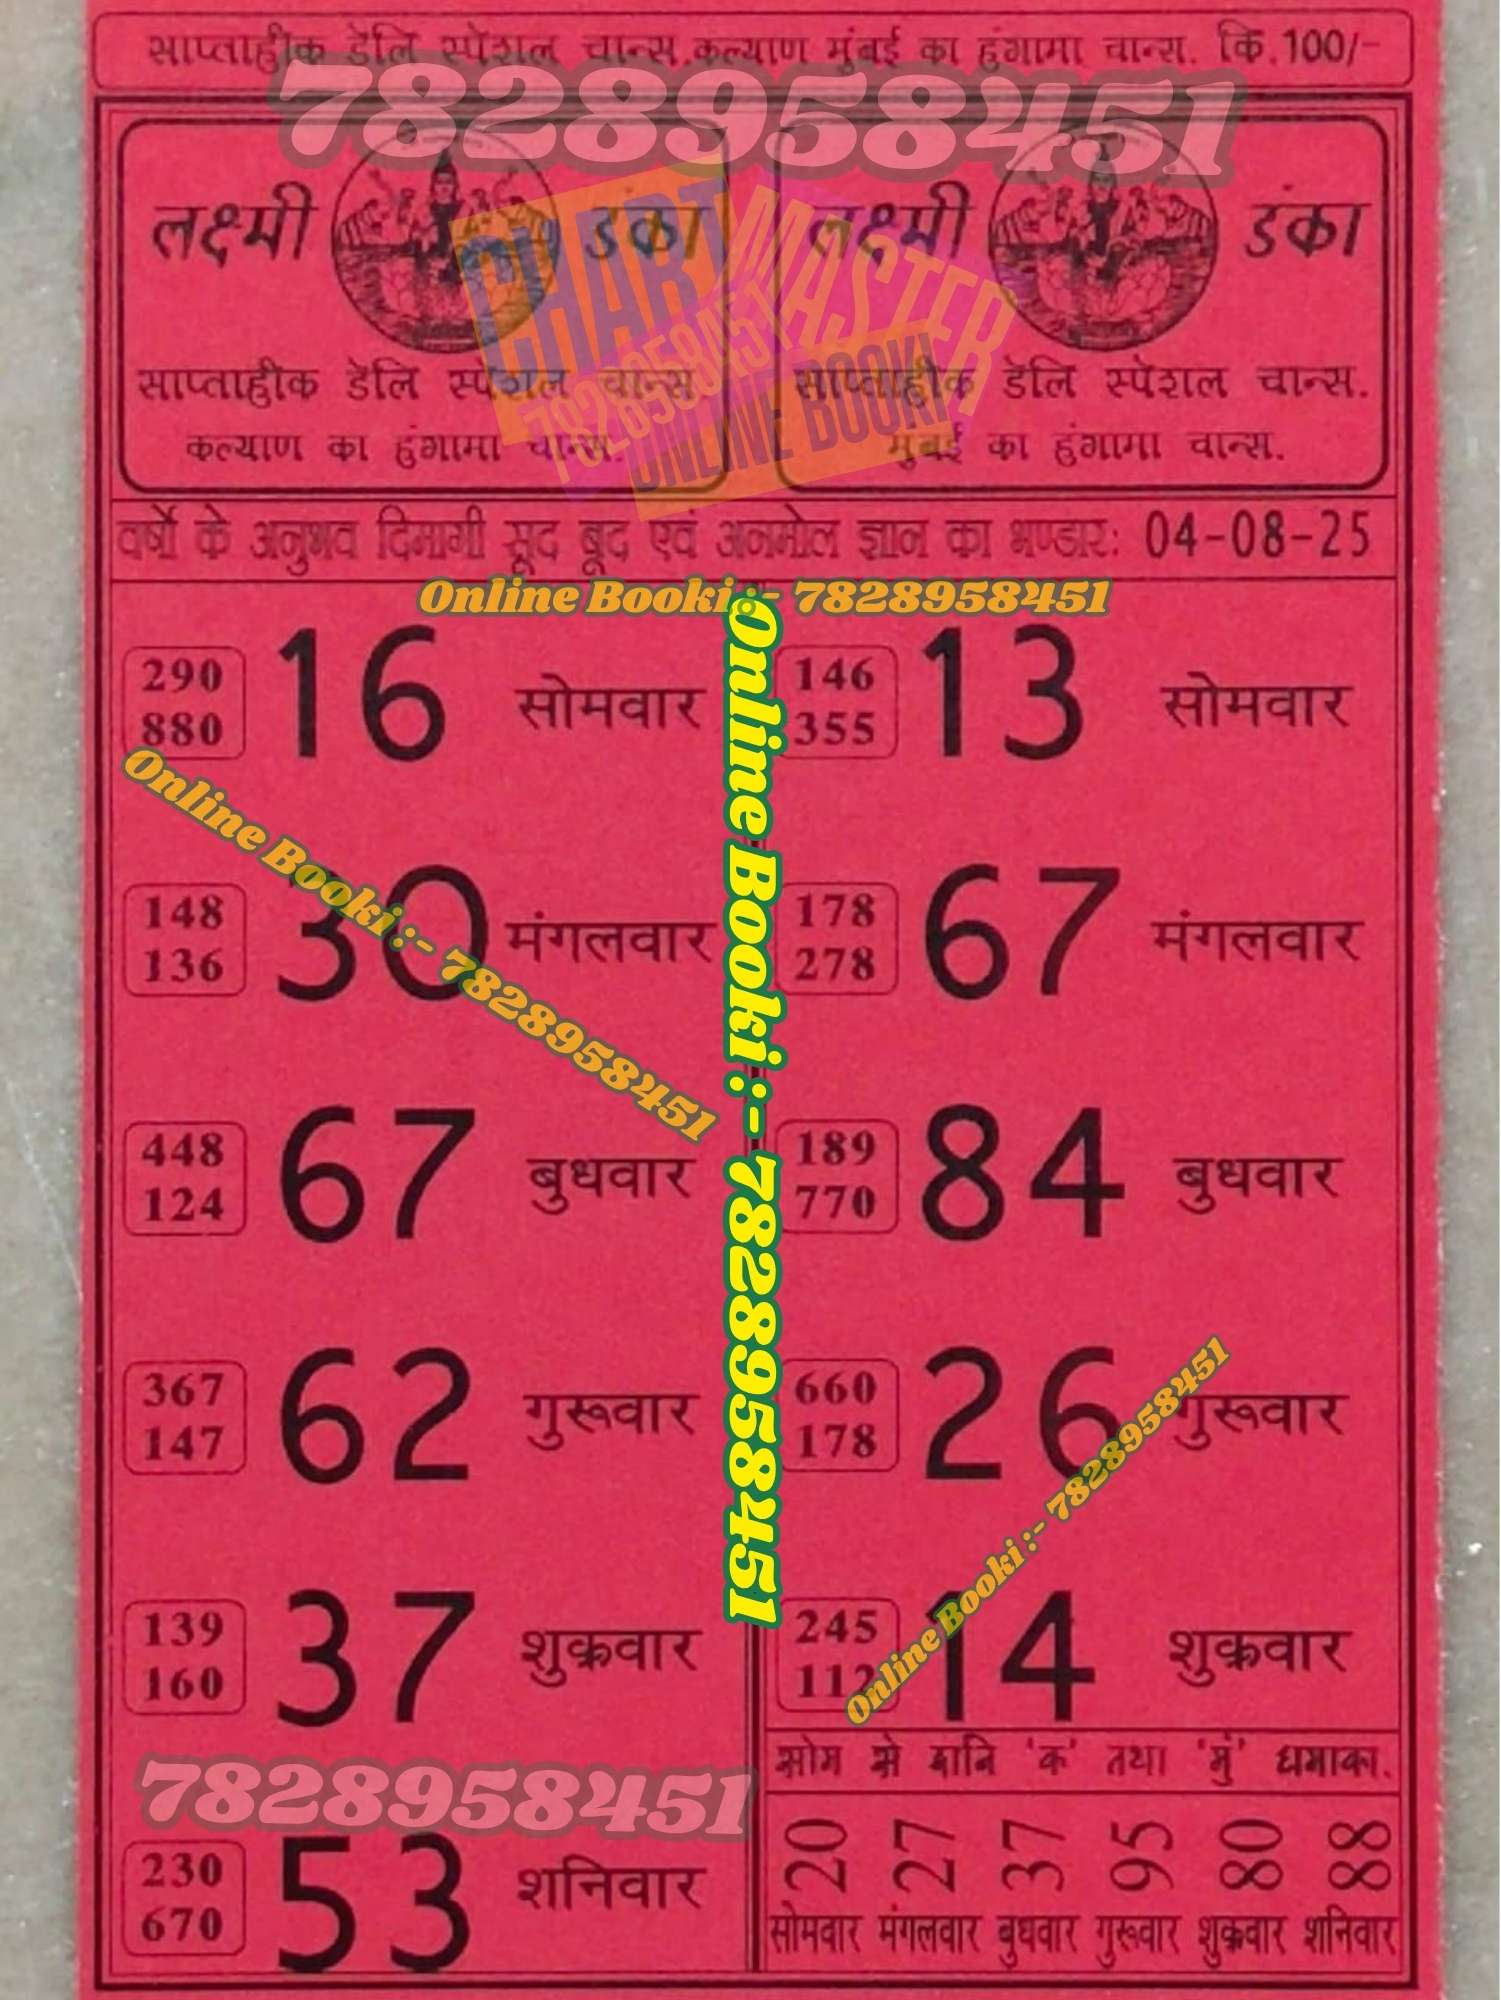 साप्ताहीक डेलि स्पेशल चान्स.कल्याण मुंबई का हंगामा चान्स. कि.100/-
7828958451
लक्ष्मी डंका
साप्ताहीक डेलि स्पेशल चान्स
कल्याण का हंगामा चान्स.
लक्ष्मी डंका
साप्ताहीक डेलि स्पेशल चान्स.
मुंबई का हंगामा चान्स.
CHART MASTER
7828958451
ONLINE BOOKI
वर्षो के अनुभव दिमागी सूद बूद एवं अनमोल ज्ञान का भण्डार: 04-08-25
Online Booki :- 7828958451
290 880 16 सोमवार
146 355 13 सोमवार
Online Booki :- 7828958451
Online Booki :- 7828958451
148 136 30 मंगलवार
178 278 67 मंगलवार
448 124 67 बुधवार
189 770 84 बुधवार
367 147 62 गुरूवार
660 178 26 गुरूवार
Online Booki :- 7828958451
139 160 37 शुक्रवार
245 112 14 शुक्रवार
7828958451
230 670 53 शनिवार
सोम से शनि 'क' तथा 'मुं' धमाका.
20 27 37 95 80 88
सोमवार मंगलवार बुधवार गुरूवार शुक्रवार शनिवार